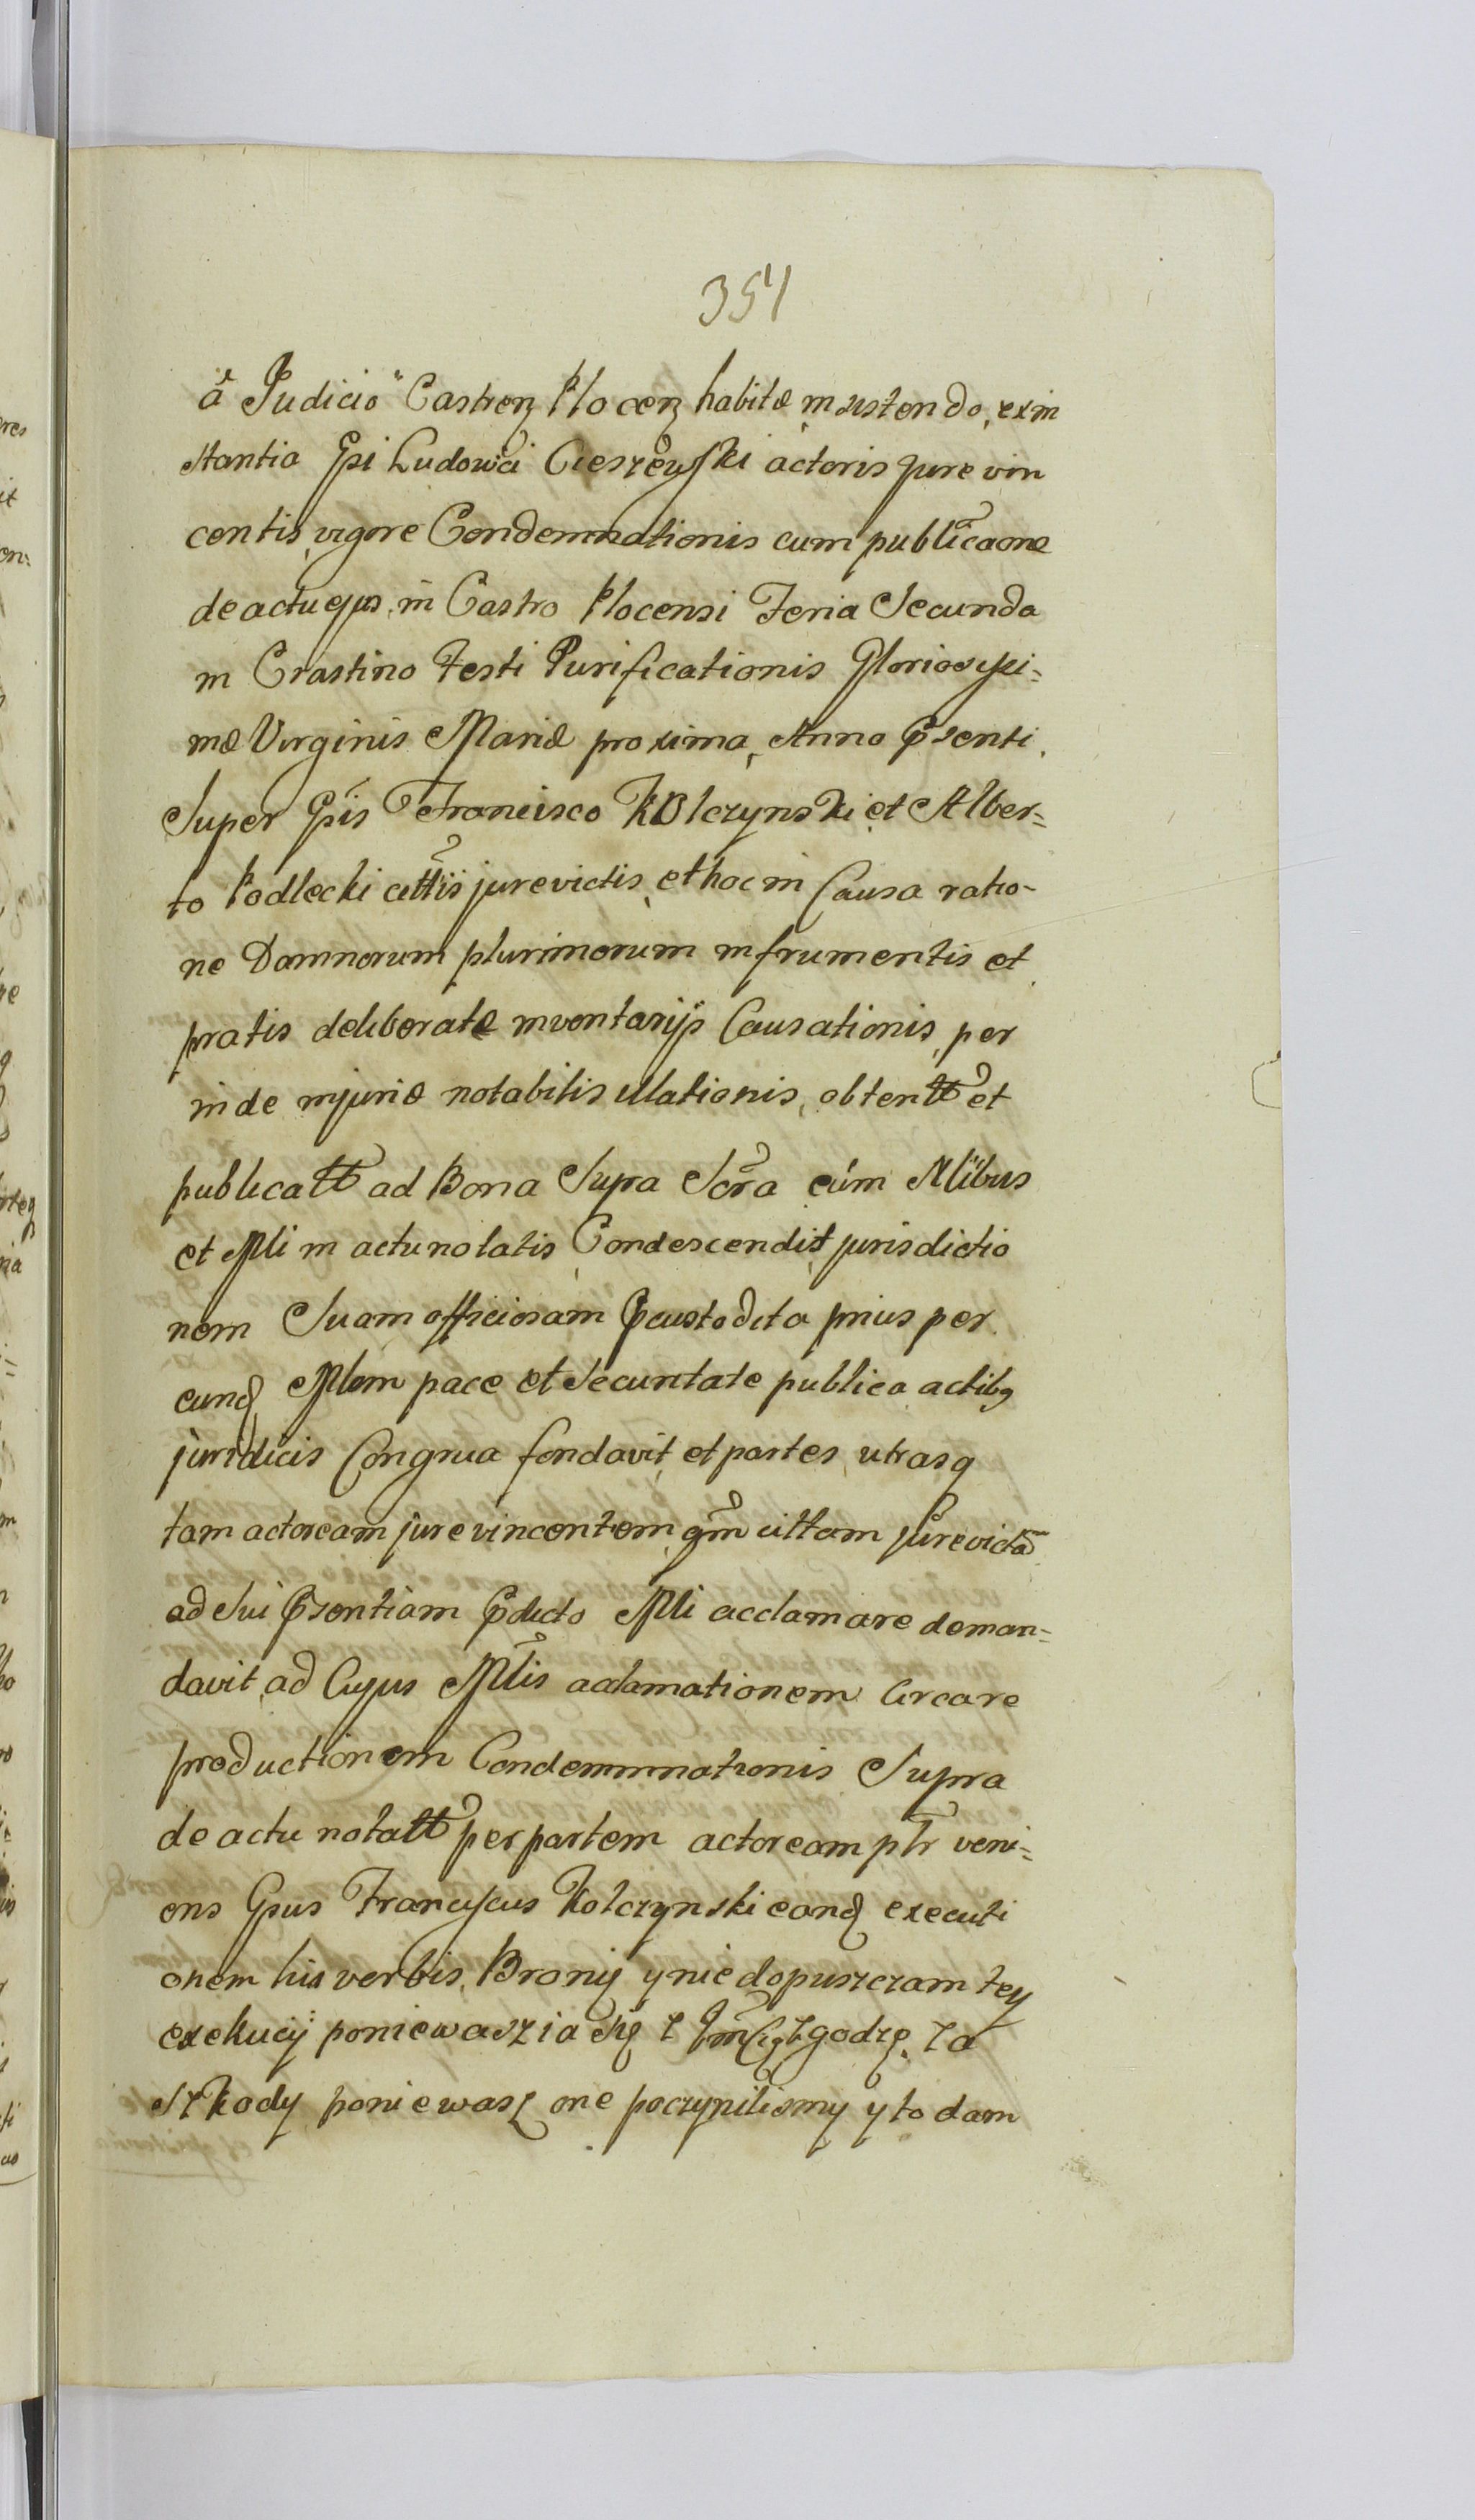 351
â Judicio Castrenʒ Plocenʒ habitæ insistendo, exin
stantia Gsi Ludovici Cieszewski actoris jure vin
centis, vigore Condemnationis cum publicãone
de actu ejus in Castro Plocensi Feria Secunda
in Crastino Festi Purificationis Gloriosissi=
mæ Virginis Mariæ proxima, Anno Psenti
Super Gsis Francisco Kolczynski et Alber=
to Podlecki cittis jurevictis, et hoc in Causa ratio-
ne Damnorum plurimorum in frumentis et
pratis deliberatæ inventarijs Causationis, per
inde injuriæ notabilis illationis, obtentt et
publicatt ad Bona Supra Scra cúm Nlibus
et Mli in actu notatis Condescendit, jurisdictio
nem Suam officiosam Pcustodita prius per
eund Mlem pace et Securitate publica actibq
juridicis Congrua fondavit, et partes utrasq
tam actoream jurevincentem, qm cittam jurevictã
ad Sui Psentiam Pdicto Mli acclamare deman=
davit, ad Cujus Mlis aclamationem Circa re
productionem Condemnnationis Supra
de actu notatt per partem actoream ptr veni=
ens Gsus Franciscus Kolczynski eand executi
onem his verbis, Bronię y nie dopuszczam tey
exekucij poniewasz ia się z godzę, za
Szkody poniewasz one poczynilismy y to dam